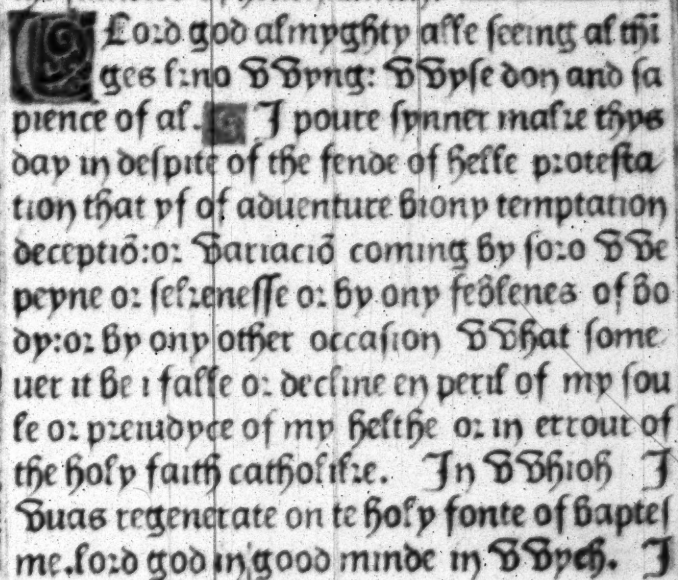 O Lord god almyghty alle seeing al thī
ges kno VVyng: VVyse don and sa
pience of al. I poure synner make thys
day in despite of the fende of helle protesta
tion that yf of aduenture biony temptation
deceptiō:or variaciō coming by soro VVe
peyne or sekenesse or by ony feblenes of bo
dy:or by ony other occasion VVhat some
uer it be i falle or decline en peril of my sou
le or preiudyce of my helthe or in errour of
the holy faith catholike. In VVhioh I
vuas regenerate on te holy fonte of baptes
me.lord god in good minde in VVych. I